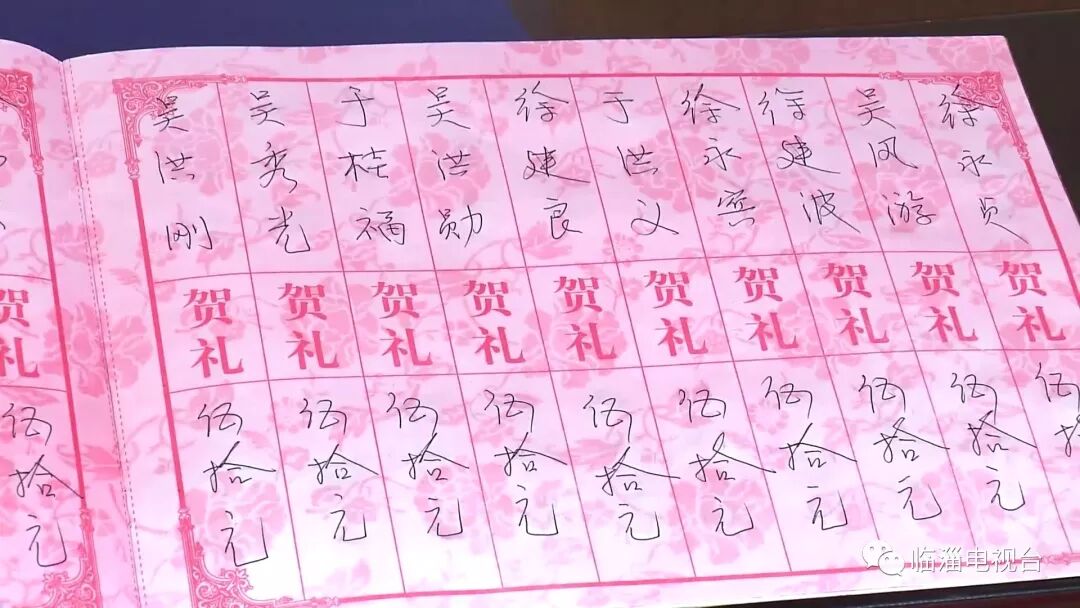 吴洪刚 贺礼 伍拾元
吴秀光 贺礼 伍拾元
于桂福 贺礼 伍拾元
吴洪勋 贺礼 伍拾元
徐建良 贺礼 伍拾元
于洪义 贺礼 伍拾元
徐永宾 贺礼 伍拾元
徐建波 贺礼 伍拾元
吴风游 贺礼 伍拾元
徐永贞 贺礼 伍拾
贺礼
伍拾元
临淄电视台